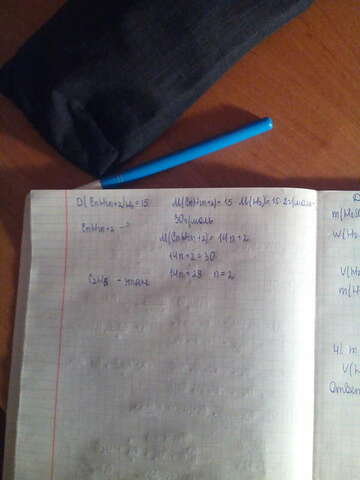 D(CnH2n+2)/H2=15 M(CnH2n+2)=15·M(H2)=15·2г/моль=
30г/моль
CnH2n+2 -?
M(CnH2n+2)=14n+2
14n+2=30
C2H6 - этан 14n=28 n=2
m(H
W(H2
V(H
m(H
4) m
V(H
Ответ